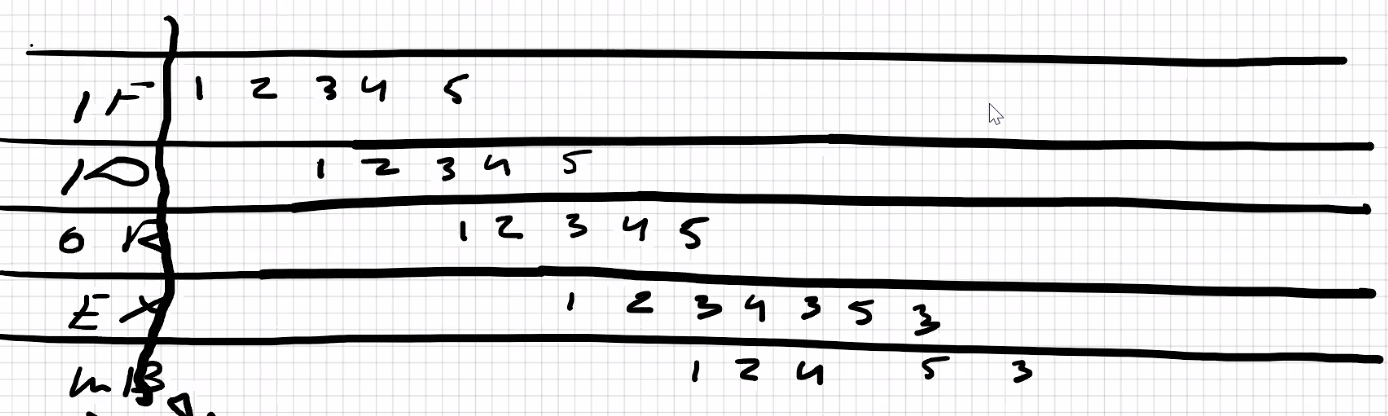 IF 1 2 3 4 5
ID 1 2 3 4 5
O R 1 2 3 4 5
EX 1 2 3 4 3 5 3
1 2 4 5 3